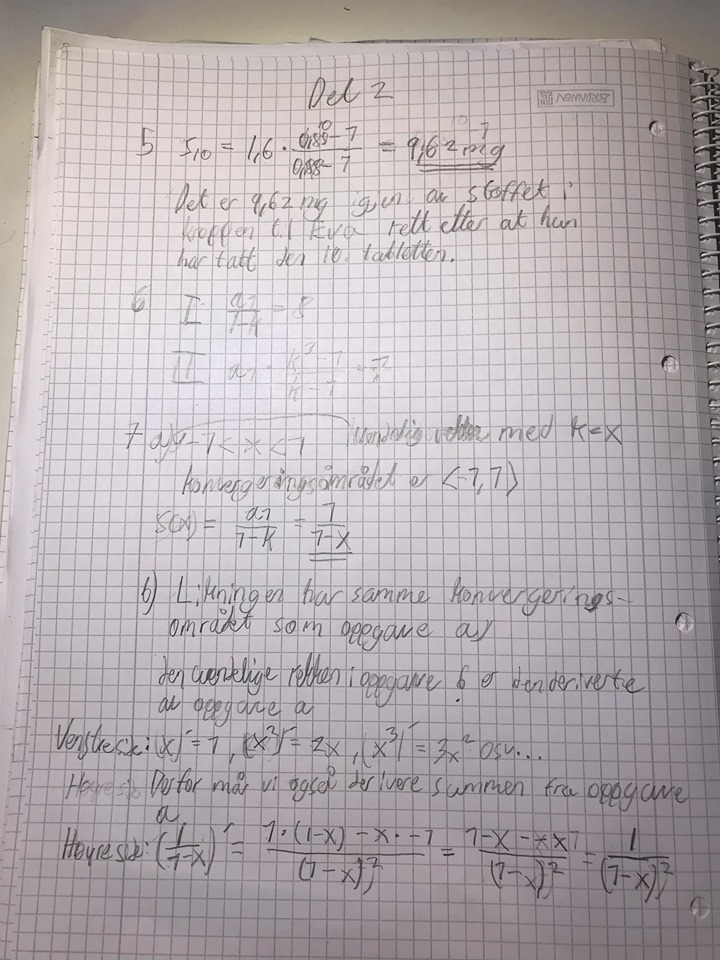 Del 2
BRUNNEN
5 S₁₀ = 1,6 · (0,88¹⁰ - 1)/(0,88 - 1) = 9,62 mg
Det er 9,62 mg igjen av stoffet i
kroppen til Eva rett etter at hun
har tatt den 10. tabletten.
6 I a₁/(1-k) = 8
II a₁ · (k³-1)/(k-1) = 7
7 a) -1 < x < 1 med k=x
konvergeringsområdet er <-1,1>
S(x) = a₁/(1-k) = 1/(1-x)
b) Likningen har samme konvergerings-
området som oppgave a)
den uendelige rekken i oppgave b er den deriverte
av oppgave a
Venstreside: (x)´ = 1, (x²)´ = 2x, (x³)´ = 3x² osv...
Derfor må vi også derivere summen fra oppgave
a,
Høyreside: (1/(1-x))´ = (1·(1-x) - x·-1)/(1-x)² = /(1-x)² = 1/(1-x)²